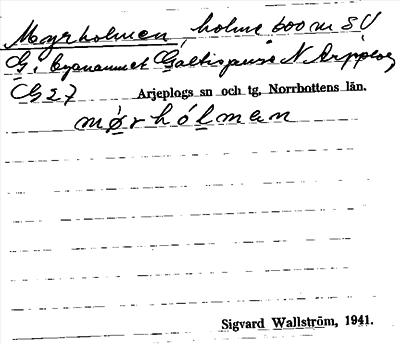 Mogrholmen, holme 600 m SV
G. byanamnet Galtispuoda N Arjeplog
CG 27
Arjeplogs sn och tg, Norrbottens län.
mørhólmen
Sigvard Wallström, 1941.